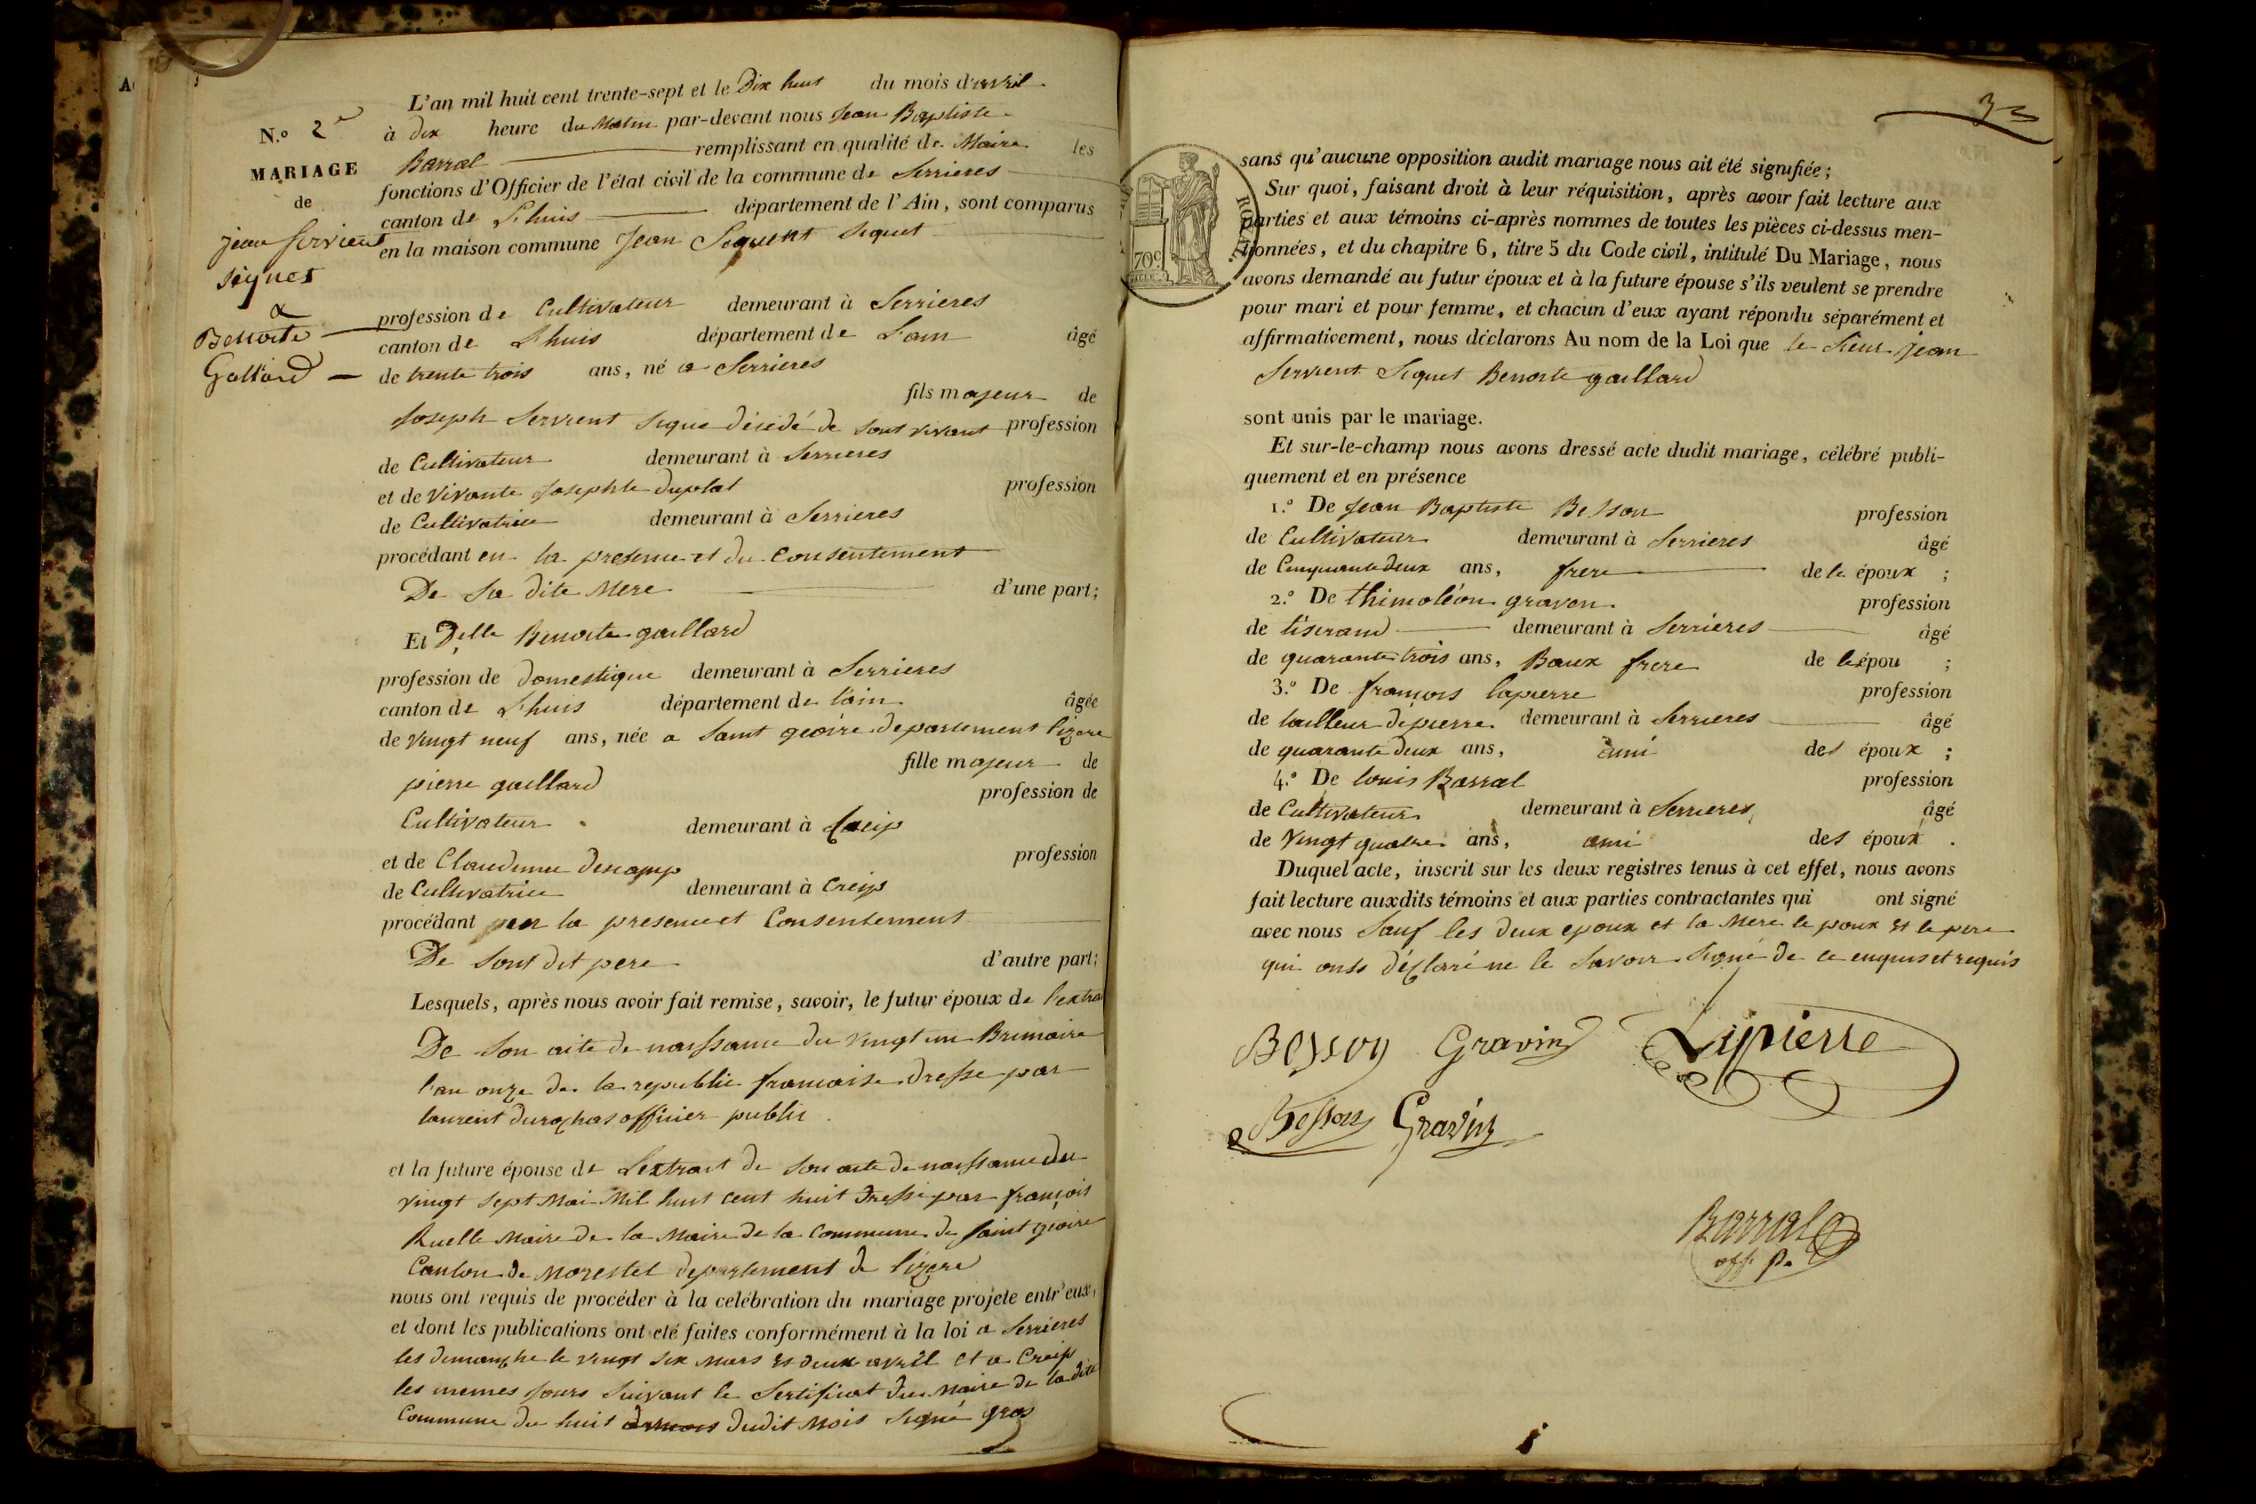 L'an mil huit cent trente-sept et le Dix huit du mois d'avril
N.º 2e
à dix heure du Matin par-devant nous Jean Baptiste
Barral remplissant en qualité de Maire les
MARIAGE
fonctions d'Officier de l'état civil de la commune de Serrieres
de
canton de L'huis département de l'Ain, sont comparus
Jean Servient
en la maison commune Jean Siquet
siquet
&
profession de Cultivateur demeurant à Serrieres
Benoite
canton de L'huis département de L'ain âgé
Galliard
de trente trois ans, né a Serrieres
fils majeur de
Joseph Servient sique décédé de sont vivant profession
de Cultivateur demeurant à Serrieres
et de vivante Josephte duplat profession
de Cultivatrice demeurant à Serrieres
procédant en la presence et du Consentement
De Sa dite Mere d'une part;
Et Delle Benoite gaillard
profession de domestique demeurant à Serrieres
canton de L'huis département de l'ain âgée
de vingt neuf ans, née a Saint geoire departement lizere
fille majeur de
pierre gaillard profession de
Cultivateur demeurant à Creip
et de Claudinne profession
de Cultivatrice demeurant à Creip
procédant en la presence et Consentement
De Sont dit pere d'autre part;
Lesquels, après nous avoir fait remise, savoir, le futur époux de l'extrai
De Son acte de naissance du vingt un Brumaire
l'an onze de la republic francaise dresse par
laurent officier public
et la future épouse de L'extrait de Son acte de naissance du
vingt Sept Mai Mil huit cent huit Dressé par francois
Ruelle Maire de la Maire de la Commune de Saint geoire
Canton de Morestel departement de lizere
nous ont requis de procéder à la célébration du mariage projeté entr'eux,
et dont les publications ont été faites conformément à la loi a Serrieres
les dimanche le vingt six Mars et deux avril et a Creip
les memes Jours Suivant le Sertificat du Maire de la dite
Commune du huit dudit Mois Signé gros
3
ROYAL
70c
sans qu'aucune opposition audit mariage nous ait été signifiée;
Sur quoi, faisant droit à leur réquisition, après avoir fait lecture aux
parties et aux témoins ci-après nommes de toutes les pièces ci-dessus men-
tionnées, et du chapitre 6, titre 5 du Code civil, intitulé Du Mariage, nous
avons demandé au futur époux et à la future épouse s'ils veulent se prendre
pour mari et pour femme, et chacun d'eux ayant répondu séparément et
affirmativement, nous déclarons Au nom de la Loi que le Sieur Jean
Servient Siquet Benoite gaillard
sont unis par le mariage.
Et sur-le-champ nous avons dressé acte dudit mariage, célébré publi-
quement et en présence
1.º De Jean Baptiste Besson profession
de Cultivateur demeurant à Serrieres âgé
de Cinquante deux ans, frere de le époux ;
2.º De thimoléon gravon profession
de tiserand demeurant à Serrieres âgé
de quarante trois ans, Baux frere de le épou ;
3.º De francois lapierre profession
de tailleur de pierre demeurant à Serrieres âgé
de quarante deux ans, ami des époux ;
4.º De louis Barral profession
de Cultivateur demeurant à Serrieres âgé
de Vingt quatre ans, ami des époux .
Duquel acte, inscrit sur les deux registres tenus à cet effet, nous avons
fait lecture auxdits témoins et aux parties contractantes qui ont signé
avec nous Sauf les deux epoux et la Mere le poux et le pere
qui onts déclaré ne le Savoir Signé de ce enquis et requis
Besson Gravin Lapierre
Besson Gravin
Barral
off. P.